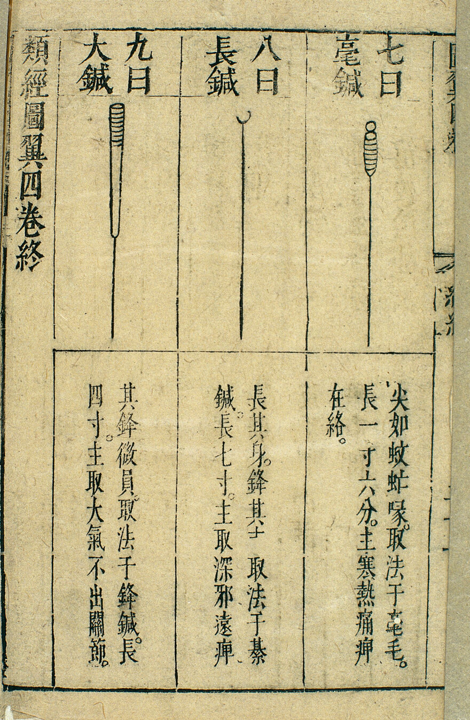 七曰
毫鍼
尖如蚊虻喙。取法于毫毛。
長一寸六分。主寒熱痛痹
在絡。
八曰
長鍼
長其身。鋒其 取法于綦
鍼。長七寸。主取深邪遠痹
九曰
大鍼
其鋒微員。取法于鋒鍼。長
四寸。主取大氣不出關節。
類經圖翼四卷終